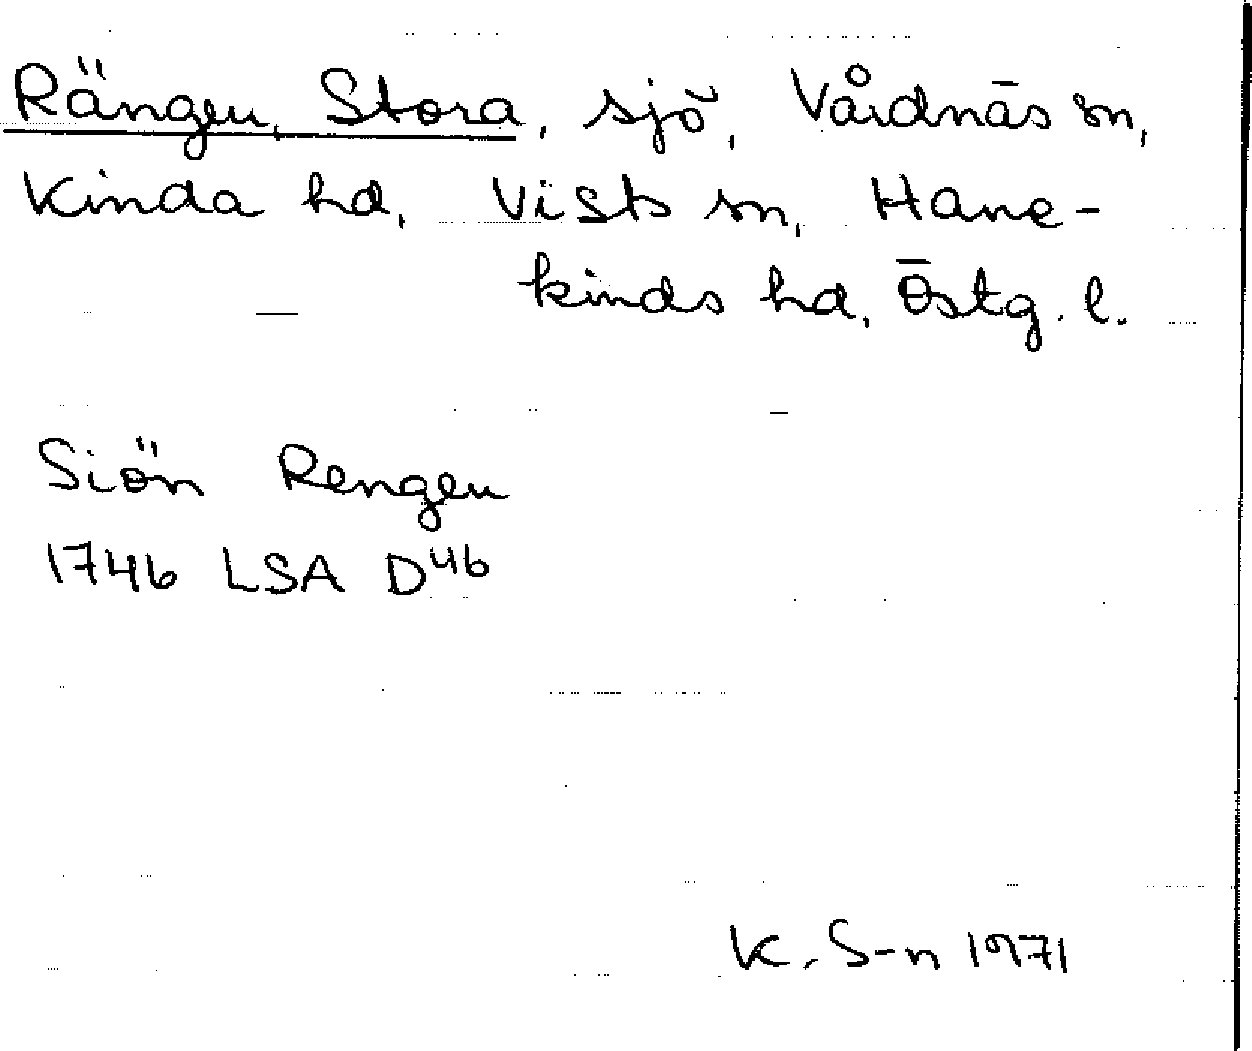 Rängen, Stora, sjö, Vårdnäs sn,
Kinda hd, Vists sn, Hane-
kinds hd, Östg. l.
Siön Rengen
1746 LSA D46
K. S-n 1971